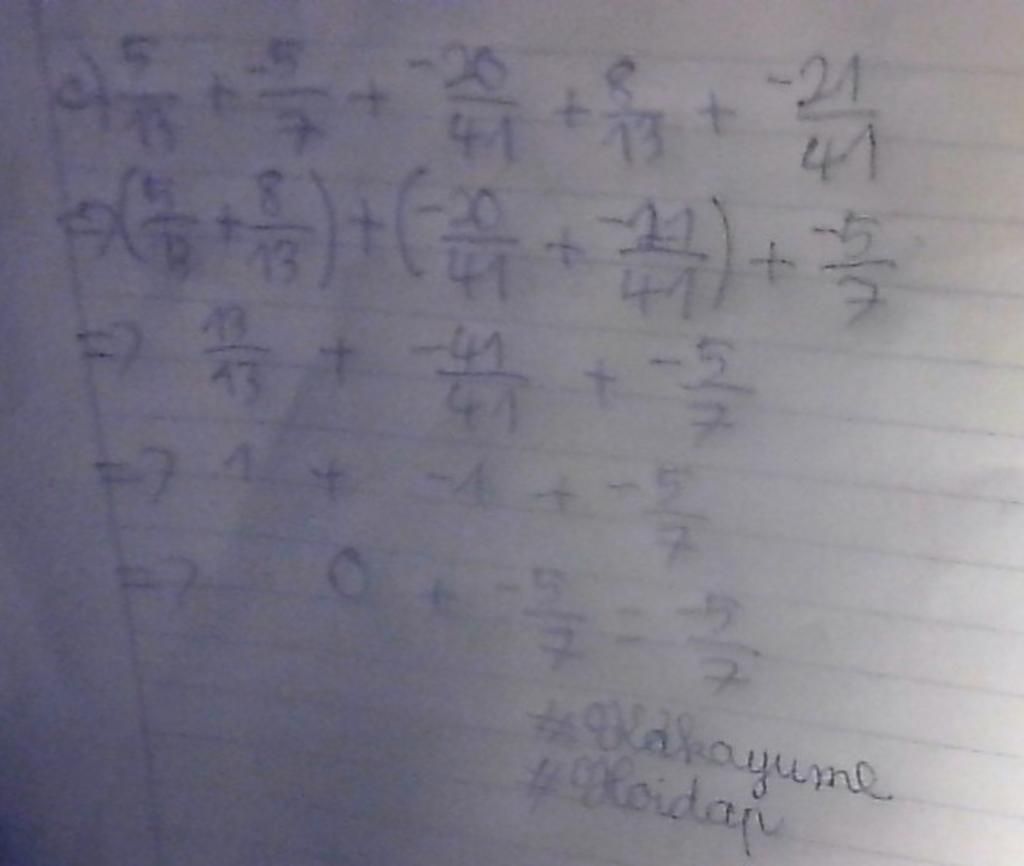 c) 5/13 + -5/7 + -20/41 + 8/13 + -21/41
=> (5/13 + 8/13) + (-20/41 + -21/41) + -5/7
=> 13/13 + -41/41 + -5/7
=> 1 + -1 + -5/7
=> 0 + -5/7 = -5/7
#Kakayume
#Hoidap